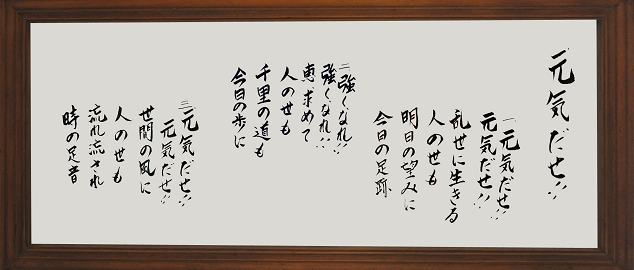 元気だせ!!
一 元気だせ!!
元気だせ!!
乱世に生きる
人の世も
明日の望みに
今日の足跡
二 強くなれ!!
強くなれ!!
恵求めて
人の世も
千里の道も
今日の歩に
三 元気だせ!!
元気だせ!!
世間の風に
人の世も
流れ流され
時の足音